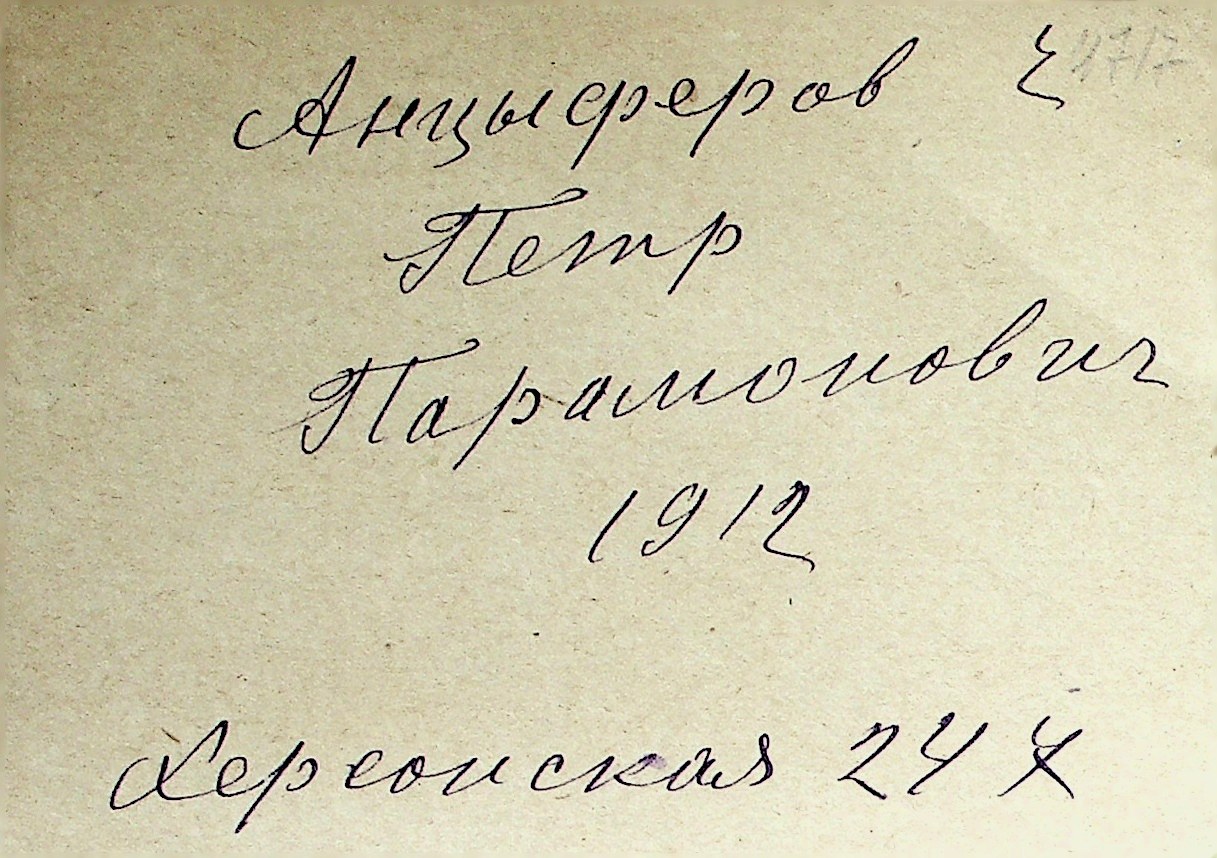 Анцыферов
Петр
Парамонович
1912
Херсонская 24